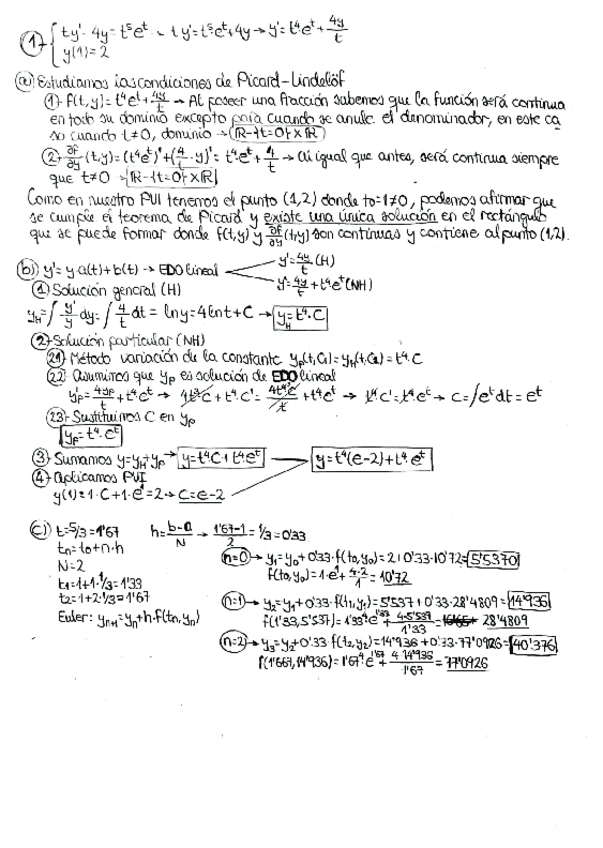 ① { ty'- 4y = t⁵e^t → ty' = t⁵e^t + 4y → y' = t⁴e^t + 4y/t
y(1) = 2
ⓐ) Estudiamos las condiciones de Picard-Lindelöf
①- f(t,y) = t⁴e^t + 4y/t → Al poseer una fracción sabemos que la función será continua
en todo su dominio excepto para cuando se anule el denominador, en este ca
so cuando t≠0, dominio → (ℝ-{t=0}) x ℝ
②- ∂f/∂y (t,y) = (t⁴e^t)' + (4/t · y)' = t⁴e^t + 4/t → Al igual que antes, será continua siempre
que t≠0 → (ℝ-{t=0}) x ℝ
Como en nuestro PVI tenemos el punto (1,2) donde t0=1≠0, podemos afirmar que
se cumple el teorema de Picard y existe una única solución en el rectángulo
que se puede formar donde f(t,y) y ∂f/∂y (t,y) son continuas y contiene al punto (1,2).
ⓑ) y' = y a(t) + b(t) → EDO lineal
y' = 4y/t (H)
y' = 4y/t + t⁴e^t (NH)
① Solución general (H)
y_H = ∫ y'/y dy = ∫ 4/t dt = ln y = 4 ln t + C → y_H = t⁴·C
②- Solución particular (NH)
㉑- Método variación de la constante y_p(t,C) = y_H(t,C) = t⁴·C
㉒- Asumimos que y_p es solución de EDO lineal
y'_p = 4y_p/t + t⁴e^t → 4t³C + t⁴·C' = 4t⁴C/t + t⁴e^t → t⁴C' = t⁴e^t → C = ∫e^t dt = e^t
㉓- Sustituimos C en y_p
y_p = t⁴·e^t
③- Sumamos y = y_H + y_p → y = t⁴C + t⁴e^t → y = t⁴(e-2) + t⁴·e^t
④- Aplicamos PVI
y(1) = 1·C + 1·e¹ = 2 → C = e-2
ⓒ) t = 5/3 = 1'67 h = b-a/N → 1'67-1/2 = 1/3 = 0'33
tn = t0 + n·h
N = 2
t1 = 1+1·1/3 = 1'33
t2 = 1+2·1/3 = 1'67
Euler: y_n+1 = y_n + h·f(tn,yn)
n=0 → y1 = y0 + 0'33·f(t0,y0) = 2 + 0'33·10'72 = 5'5370
f(t0,y0) = 1·e¹ + 4·2/1 = 10'72
n=1 → y2 = y1 + 0'33·f(t1,y1) = 5'537 + 0'33·28'4809 = 14'936
f(1'33,5'537) = 1'33⁴·e^1'33 + 4·5'537/1'33 = 28'4809
n=2 → y3 = y2 + 0'33·f(t2,y2) = 14'936 + 0'33·77'0926 = 40'376
f(1'667,14'936) = 1'67⁴·e^1'67 + 4·14'936/1'67 = 77'0926